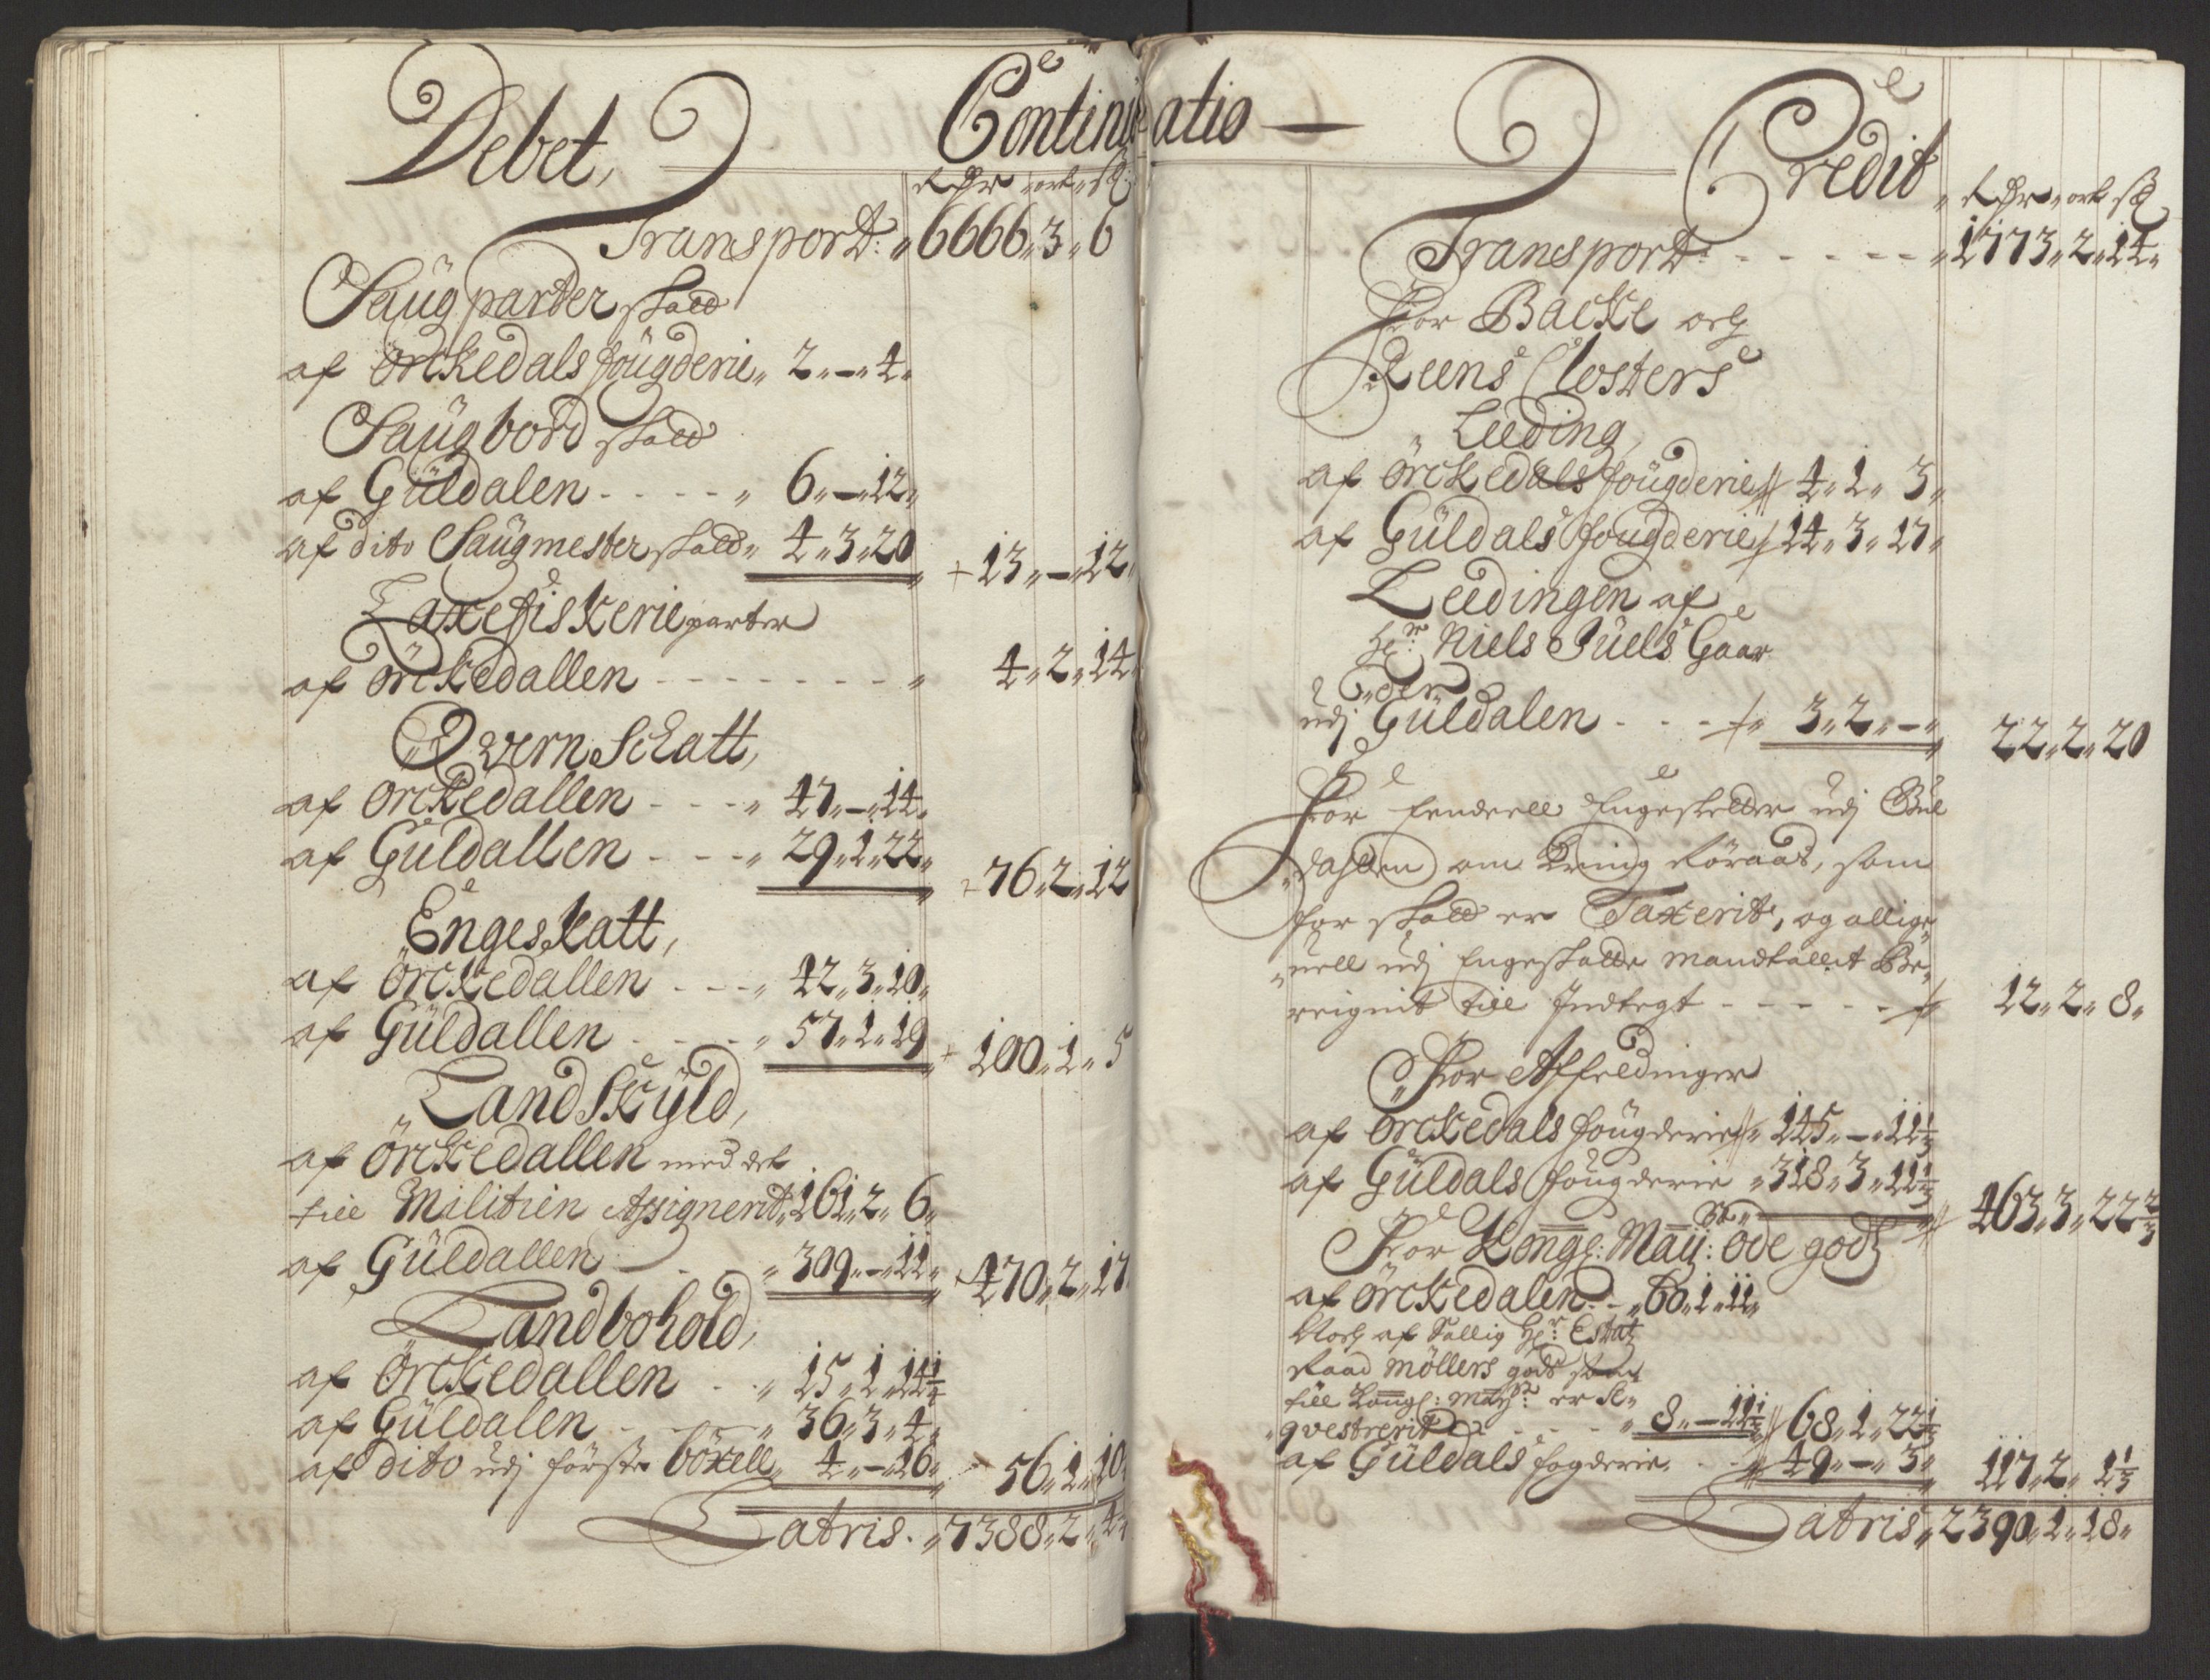 Debet, Continuatio —
rdr ort sk
Transport: „ 6666„ 3„ 6
Saügparter skatt
af örckedals fougderie„ 2„ — „ 4„
Saügbord skatt
af Güldalen - - - - „ 6„ — „ 12„
af dito Saügmester skatt„ 4„ 3„ 20 „ 13„ — „ 12„
Laxefiskerie parter
af örckedallen - - - - - - - „ 4„ 2„ 14
Qvern Schatt,
af örckedallen - - - „ 47„ — „ 14„
af Güldallen - - - „ 29„ 1„ 22„ 76„ 2„ 12
Engeskatt,
af örckedallen - - - „ 42„ 3„ 10„
af Güldallen - - - „ 57„ 1„ 19 „ 100„ 1„ 5
Landskyld,
af örckedallen med det
till Militien Assignerit„ 161„ 2„ 6„
af Güldallen — - „ 309„ — „ 11„ 470„ 2„ 17
Landbohold,
af örckedallen - - „ 15„ 1„ 14 1/4
af Güldalen - - - „ 36„ 3„ 4„
af dito udj förste böxell„ 4„ — „ 16„ 56„ 1„ 10
Latris. „ 7388„ 2„ 4
Credit
rdr „ ort sk
Transport - - - - - „ 1773„ 2„ 14„
For Backe och
Reens Closters
Leeding,
af örckedals fougderie 4„ 1„ 3„
af Güldals fougderie 14„ 3„ 17„
Leedingen af
Hr: Niels Jüels Gaar
„der
udj Güldalen - - - 3„ 2„ — „ 22„ 2„ 20
For Engeskatter udj Gül
„dahlen om kring Röraas, som
for skatt er Taxerit, og allige„
„vell udj Engeskatte mandtallit Be„
reignit till Indtegt - - - - - 12„ 2„ 8„
For Affeldinger
af örckedals fougderie 145„ — „ 11 1/3
af Güldals fougderie „ 318„ 3„ 11 1/3 463„ 3„ 22 2/3
For Kongl: May: öde gods
af örckedalen - - „ 60„ 1„ 11„
Noch af Sallig Hr: Estatz
Raad möllers gods som
till Kongl: Mayst: er Se„
„qvestrerit - - - - „ 8„ — „ 11 1/3 68„ 1„ 22 1/3
af Güldals fogderie - - „ 49„ — „ 3„ 117„ 2„ 1 1/3
Latris„ 2390„ 1„ 18„